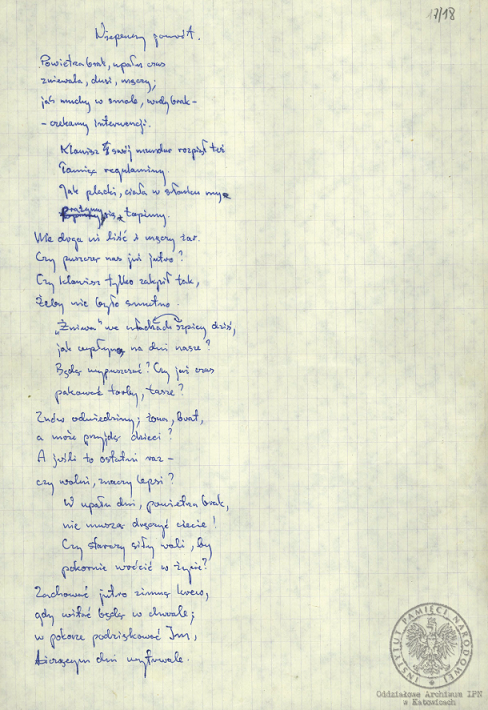 17/18
Niepewny powrót.
Powietrza brak, upalny czas
zniewala, dusi, męczy;
jak muchy w smole, wody brak-
- czekamy Interwencji.
Klawisz swój mundur rozpiął też
łamiąc regulaminy.
Jak placki, ciała w słońcu my
się, topimy.
Nie drga ni liść i męczy żar.
Czy puszczą nas już jutro?
Czy klawisz tylko zakpił tak,
Żeby nie było smutno.
"Żniwa" we szpicy dziś,
jak wpłyną na dni nasze?
Będą wypuszczać? Czy już czas
pakować torby, tasze?
Znów odwiedziny; żona, brat,
a może przyjdą dzieci?
A jeśli to ostatni raz -
czy wolni, znaczy lepsi?
W upału dni, powietrza brak,
nie muszą dręczyć ciecie!
Czy starczy siły woli, by
pokornie wrócić w życie?
Zachować jutro zimną krew,
gdy witać będą w chwale;
w pokorze podziękować Im,
bieżącym dni
INSTYTUT PAMIĘCI NARODOWEJ
Oddziałowe Archiwum IPN
w Katowicach